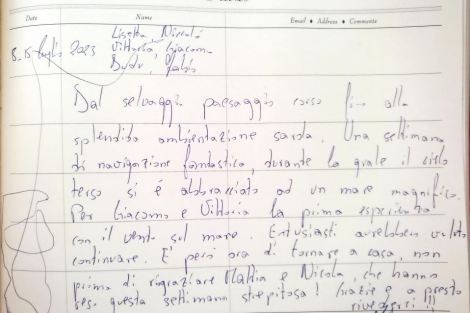 Date Name Email ♦ Address ♦ Comments
Lisetta, Niccolò
8-15 luglio 2023 Vittoria, Giacomo
Fabio
Dal selvaggio paesaggio corso fino alla
splendida ambientazione sarda. Una settimana
di navigazione fantastica, durante la quale il cielo
terso si è abbracciato ad un mare magnifico.
Per Giacomo e Vittoria la prima esperienza
con il vento sul mare. Entusiasti avrebbero voluto
continuare. E' però ora di tornare a casa, non
prima di ringraziare Mattia e Nicola, che hanno
reso questa settimana strepitosa! Grazie e a presto
rivederci!!